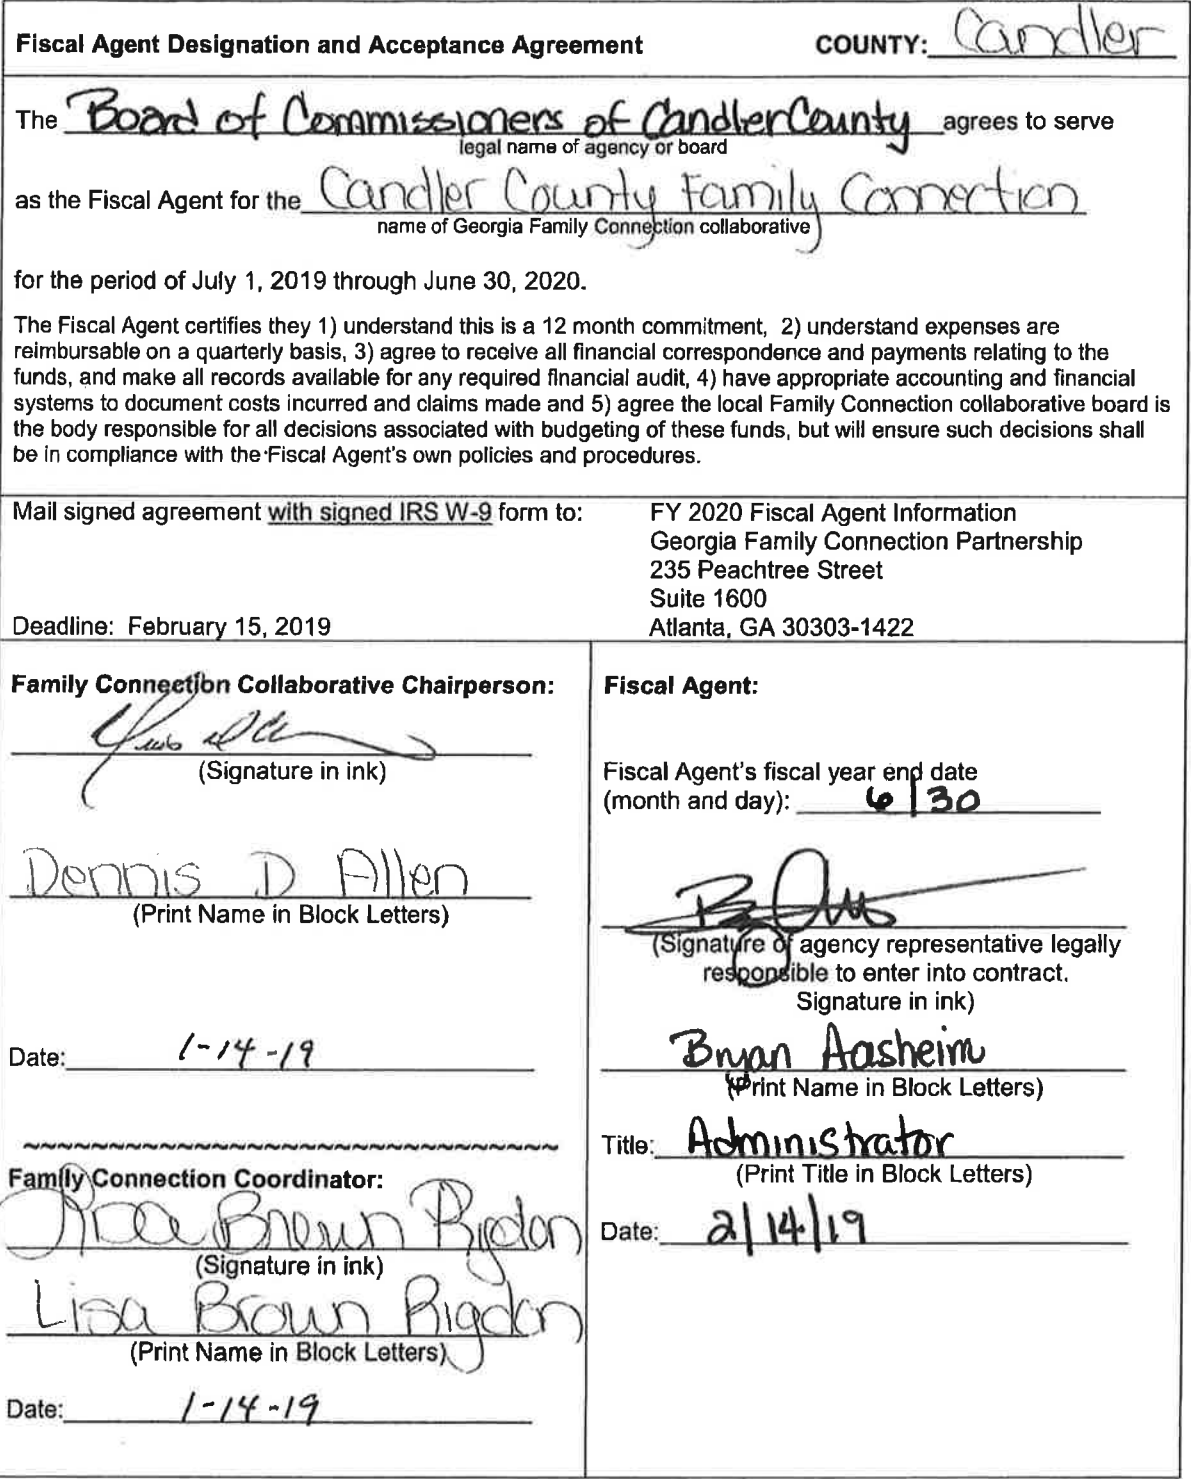 Fiscal Agent Designation and Acceptance Agreement COUNTY: Candler
The Board of Commissioners of Candler County agrees to serve
legal name of agency or board
as the Fiscal Agent for the Candler County Family Connection
name of Georgia Family Connection collaborative
for the period of July 1, 2019 through June 30, 2020.
The Fiscal Agent certifies they 1) understand this is a 12 month commitment, 2) understand expenses are
reimbursable on a quarterly basis, 3) agree to receive all financial correspondence and payments relating to the
funds, and make all records available for any required financial audit, 4) have appropriate accounting and financial
systems to document costs incurred and claims made and 5) agree the local Family Connection collaborative board is
the body responsible for all decisions associated with budgeting of these funds, but will ensure such decisions shall
be in compliance with the Fiscal Agent's own policies and procedures.
Mail signed agreement with signed IRS W-9 form to:
Deadline: February 15, 2019
FY 2020 Fiscal Agent Information
Georgia Family Connection Partnership
235 Peachtree Street
Suite 1600
Atlanta, GA 30303-1422
Family Connection Collaborative Chairperson:
(Signature in ink)
Dennis D Allen
(Print Name in Block Letters)
Date: 1-14-19
Family Connection Coordinator:
Lisa Brown Rigdon
(Signature in ink)
Lisa Brown Rigdon
(Print Name in Block Letters)
Date: 1-14-19
Fiscal Agent:
Fiscal Agent's fiscal year end date
(month and day): 6/30
(Signature of agency representative legally
responsible to enter into contract.
Signature in ink)
Bryan Aasheim
(Print Name in Block Letters)
Title: Administrator
(Print Title in Block Letters)
Date: 2/14/19